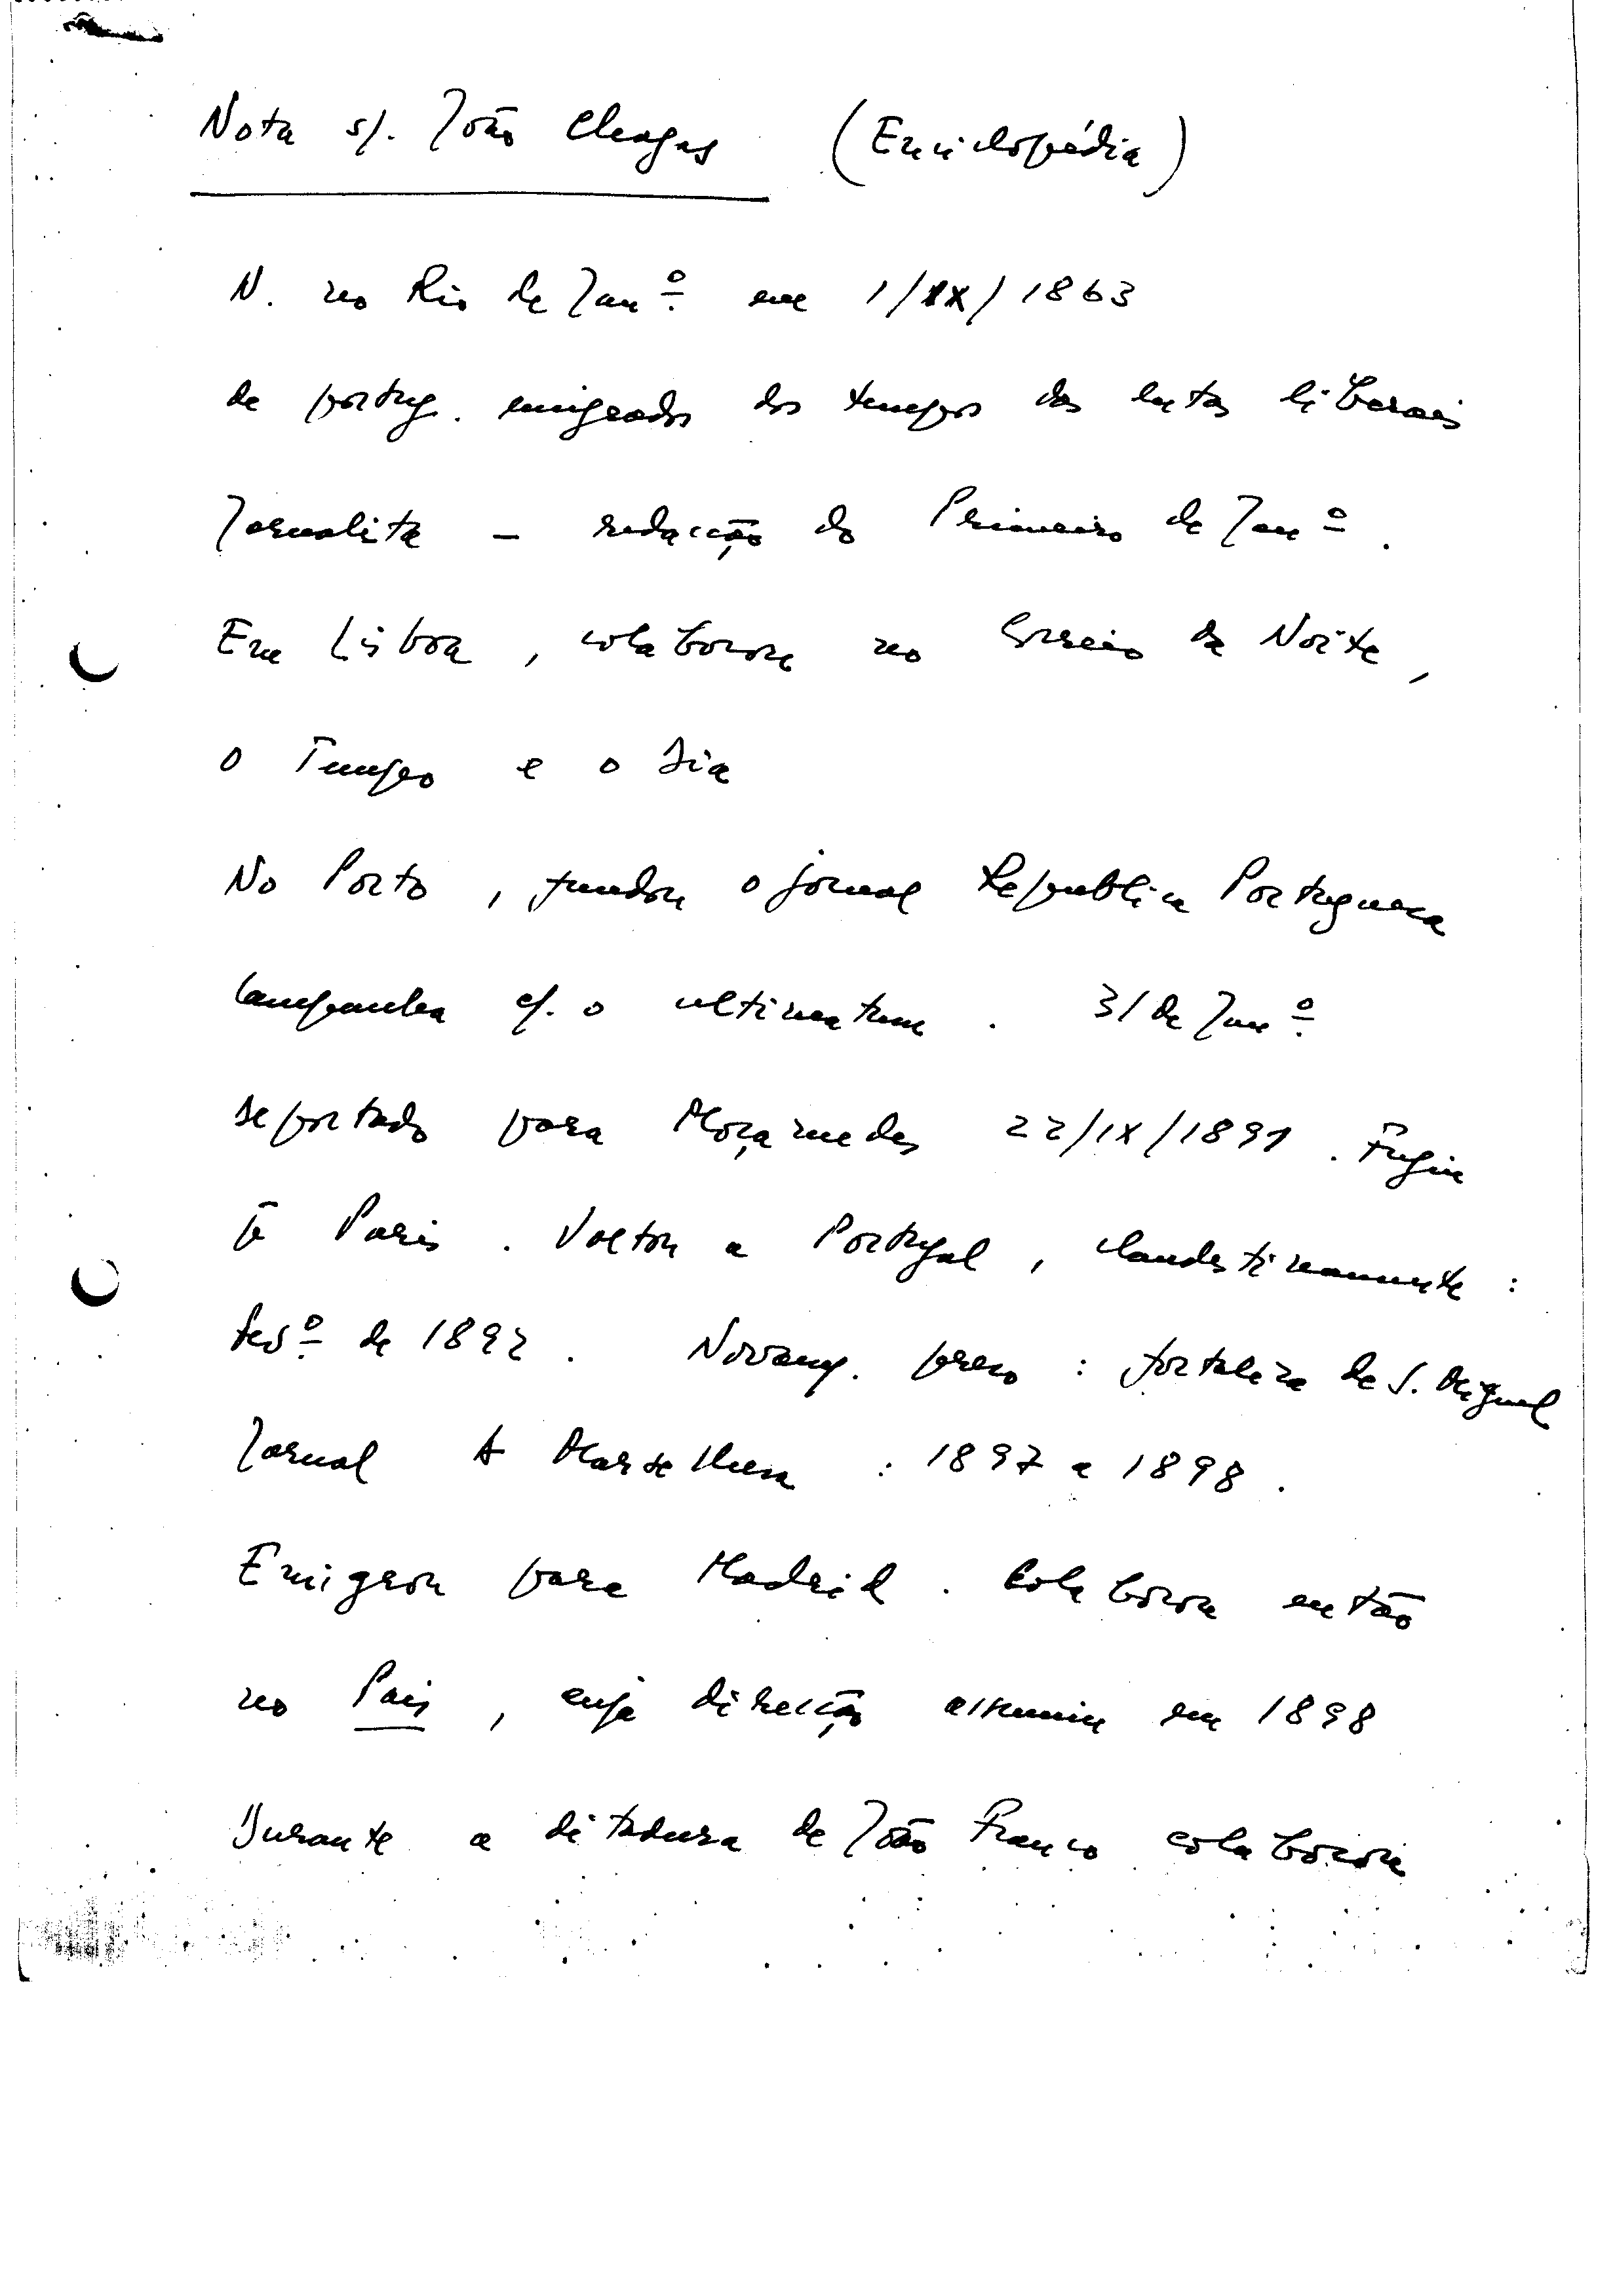 Nota s/. João Chagas (Enciclopédia)
N. no Rio de Janº em 1/IX/1863
de portug. emigrados dos tempos das lutas liberais
Jornalista – redacção do Primeiro de Janº.
Em Lisboa, colaborou no Correio da Noite,
o Tempo e o Dia
No Porto, fundou o jornal Republica Portuguesa
Campanha c/. o ultimatum. 31 de Janº
deportado para Moçamedes 22/IX/1891. Fugiu
p̄ Paris. Voltou a Portugal, clandestinamente:
fevº de 1892. Novam. preso: fortaleza de S. Miguel
Jornal A Marselhesa: 1897 a 1898.
Emigrou para Madrid. Colaborou então
no Pais, cuja direcção assumiu em 1898
Durante a ditadura de João Franco colaborou